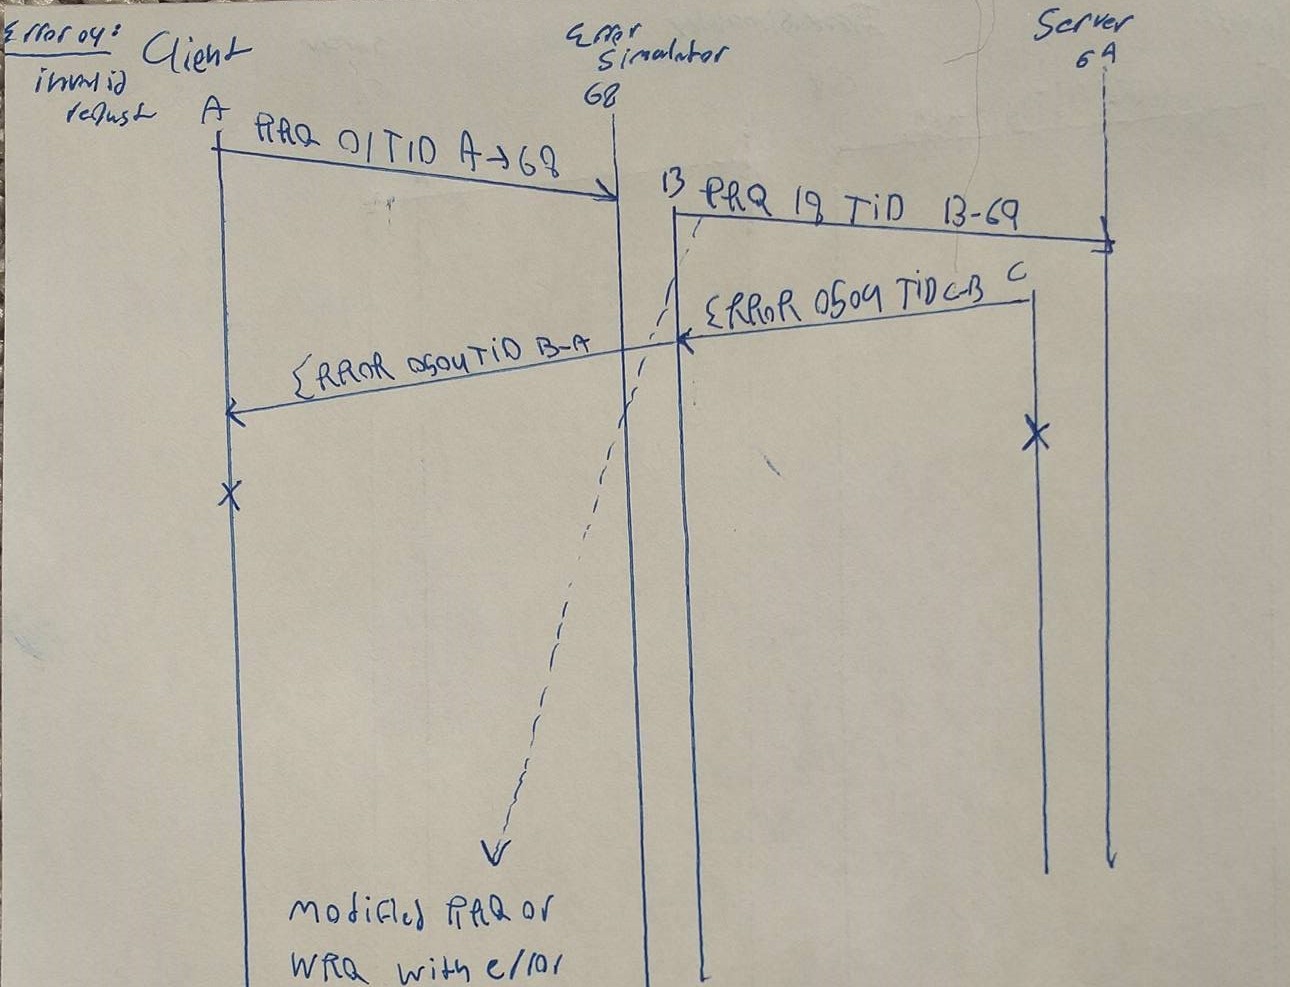 Error 04:
invalid
request
Client
A
Error
Simulator
68
Server
69
RRQ 01 TID A→68
B
RRQ 18 TiD B-69
C
ERROR 0504 TiD C-B
ERROR 0504 TiD B-A
modified RRQ or
WRQ with error